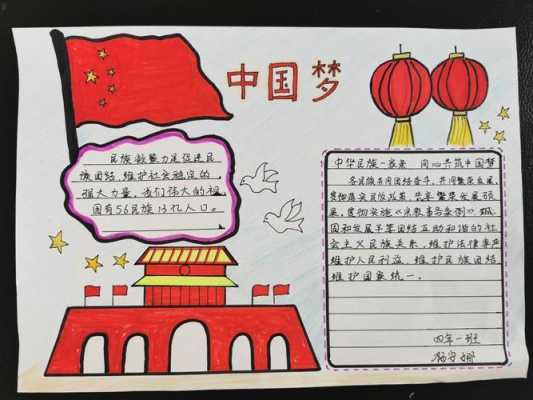 中国梦
民族凝聚力是促进民
族团结,维护社会稳定的
强大力量,我们伟大的祖
国有56民族13亿人口。
中华民族一家亲 同心共筑中国梦
各民族共同团结奋斗,共同繁荣发展,
贯彻落实民族政策,繁荣发展
展,贯彻实施《宗教事务条例》巩
固和发展平等团结互助和谐的社
会主义民族关系,维护法律尊严
维护人民利益,维护民族团结
维护国家统一。
四年一班
杨安娜